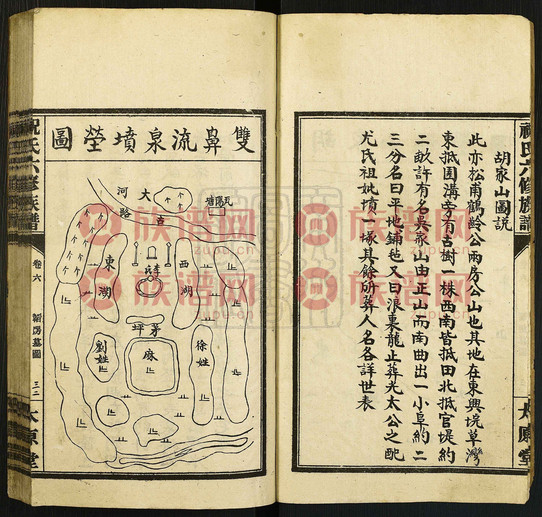 祝氏六修族譜
太原堂
胡家山圖說
此亦松甫鶴齡公兩房公山也其地在東興垸草灣
東抵圓溝旁有古樹 株西南皆抵田北抵官堤約
二畝許有名吳家山由正山而南曲出一小阜約二
三分名曰平地鋪毡又曰浪東龍止葬光太公之配
尤氏祖妣墳一塚其餘所葬人名各詳世表
雙鼻流泉墳塋圖
大
河
路
東
湖
西
湖
茅坪
麻
劉姓
徐姓
祝氏六修族譜
卷六
墓圖
三二
太原堂
族谱网
zupu.cn